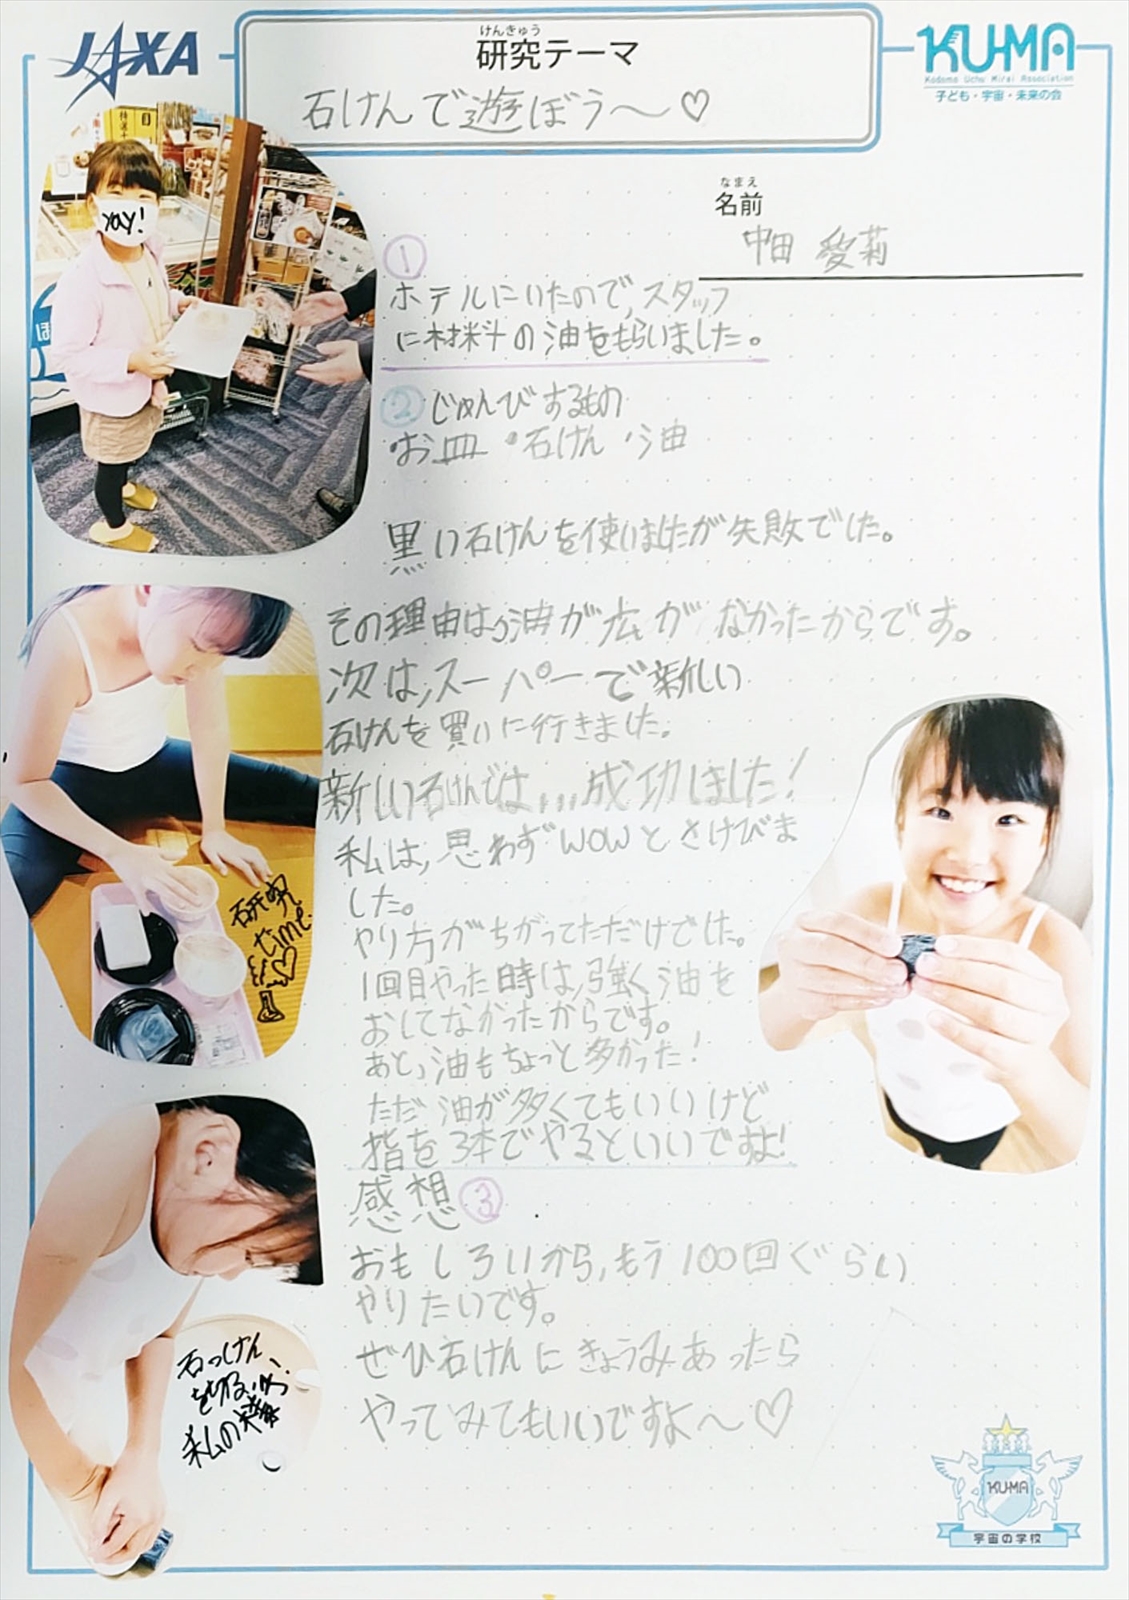 JAXA
けんきゅう
研究テーマ
石けんで遊ぼう〜♡
KU-MA
Kodomo Uchu Mirai Association
子ども・宇宙・未来の会
なまえ
名前
中田 愛莉
YAY!
①
ホテルにいたので、スタッフ
に材料の油をもらいました。
②じゅんびするもの
・お皿 ・石けん ・油
黒い石けんを使いましたが失敗でした。
その理由は、油が広がなかったからです。
次は、スーパーで新しい
石けんを買いに行きました。
新しい石けんでは...成功しました！
私は、思わずwowとさけびま
した。
やり方がちがってただけでした。
1回目やった時は、強く油を
おしてなかったからです。
あと、油もちょっと多かった！
ただ油が多くてもいいけど
指を3本でやるといいですよ！
研究
time.
感想③
おもしろいから、もう100回ぐらい
やりたいです。
ぜひ石けんにきょうみあったら
やってみてもいいですよ〜♡
石っけん
を切る
私の様
KU-MA
宇宙の学校